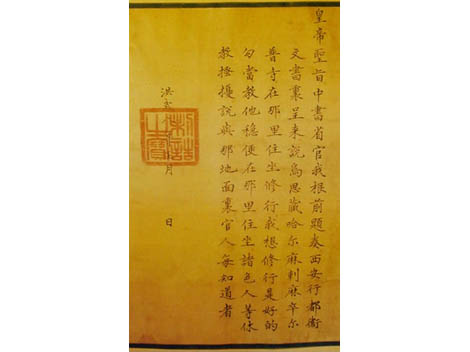 皇帝聖旨中書省官我根前題奏西安行都衛
文書裏呈來說烏思藏哈尔麻剌麻卒尔
普寺在那里住坐修行我想修行是好的
勾當教他穩便在那里住坐諸色人等休
教搔擾說與那地面裏官人每知道者
洪武 月 日
制誥之寶